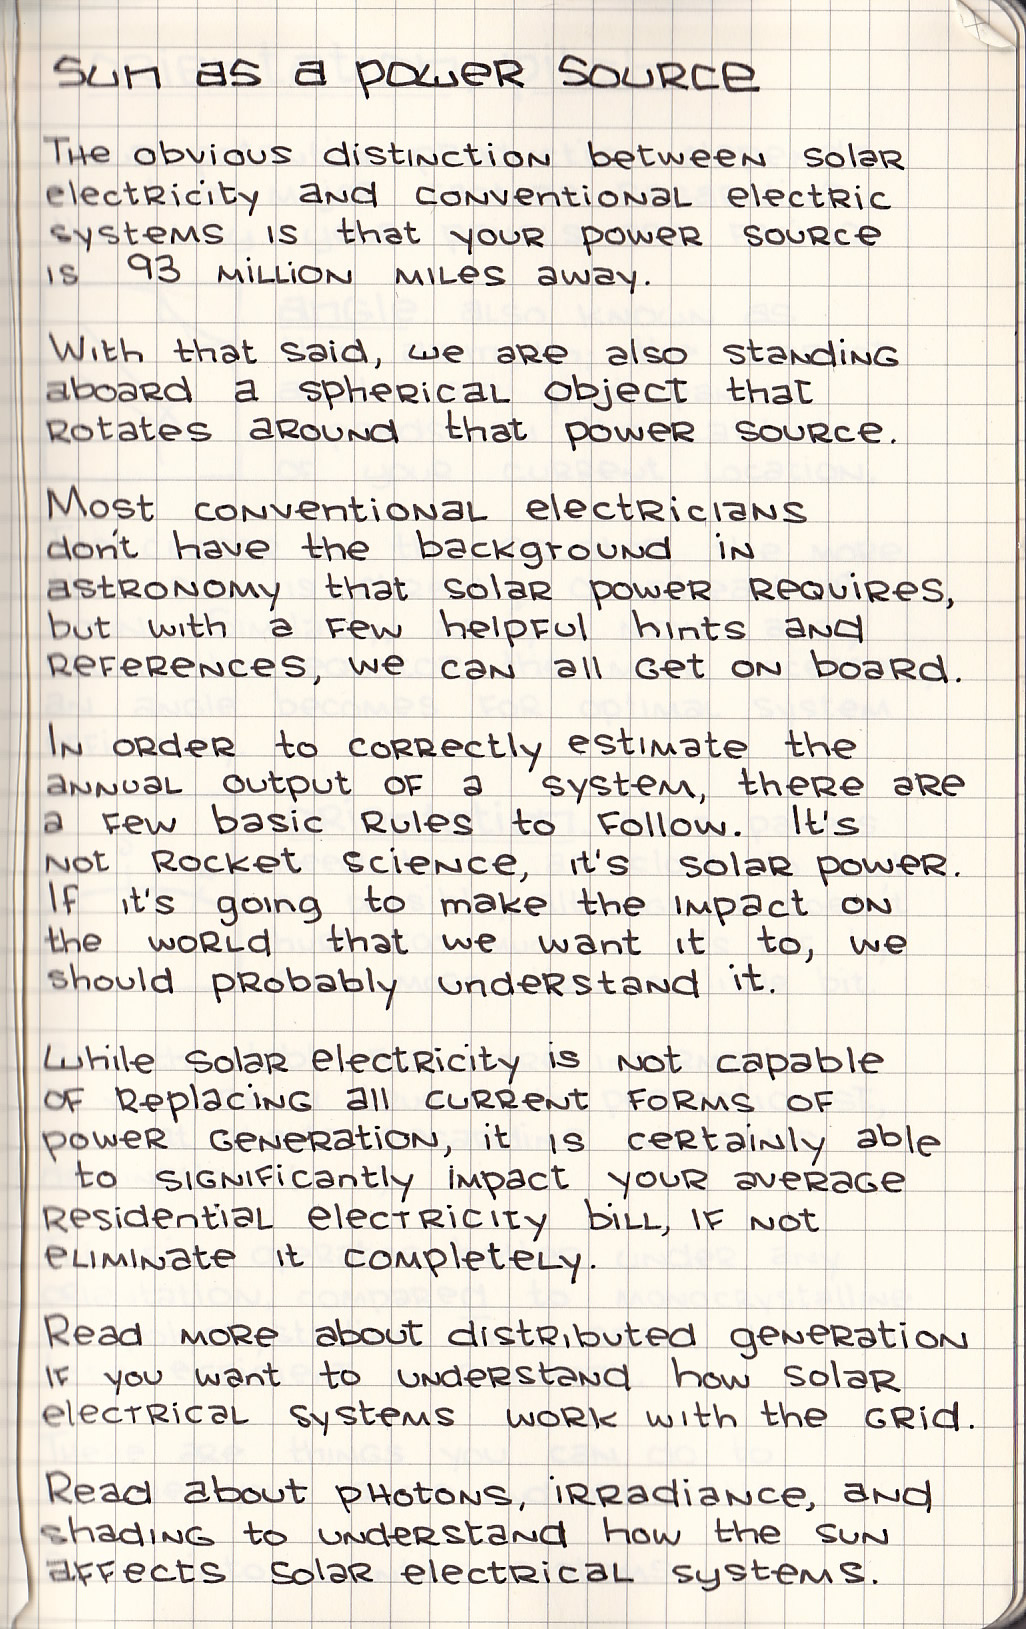 Sun as a power source
The obvious distinction between solar
electricity and conventional electric
systems is that your power source
is 93 million miles away.
With that said, we are also standing
aboard a spherical object that
rotates around that power source.
Most conventional electricians
don't have the background in
astronomy that solar power requires,
but with a few helpful hints and
references, we can all get on board.
In order to correctly estimate the
annual output of a system, there are
a few basic rules to follow. It's
not rocket science, it's solar power.
If it's going to make the impact on
the world that we want it to, we
should probably understand it.
While solar electricity is not capable
of replacing all current forms of
power generation, it is certainly able
to significantly impact your average
residential electricity bill, if not
eliminate it completely.
Read more about distributed generation
if you want to understand how solar
electrical systems work with the grid.
Read about photons, irradiance, and
shading to understand how the sun
affects solar electrical systems.